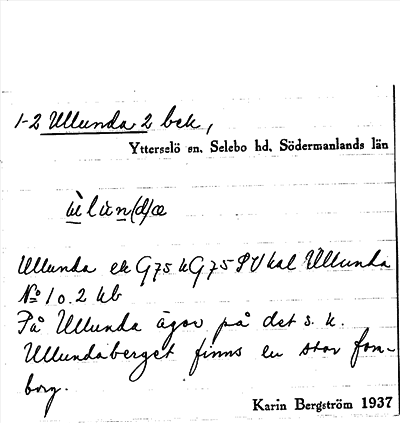 1-2 Ullunda 2 bek,
Ytterselö sn. Selebo hd. Södermanlands län
ùlun(d)a
Ullunda ek G75 kG75 SV kal Ullunda
No 1 o. 2 kb
På Ullunda ägor på det s. k.
Ullundaberget finns en stor forn-
borg.
Karin Bergström 1937